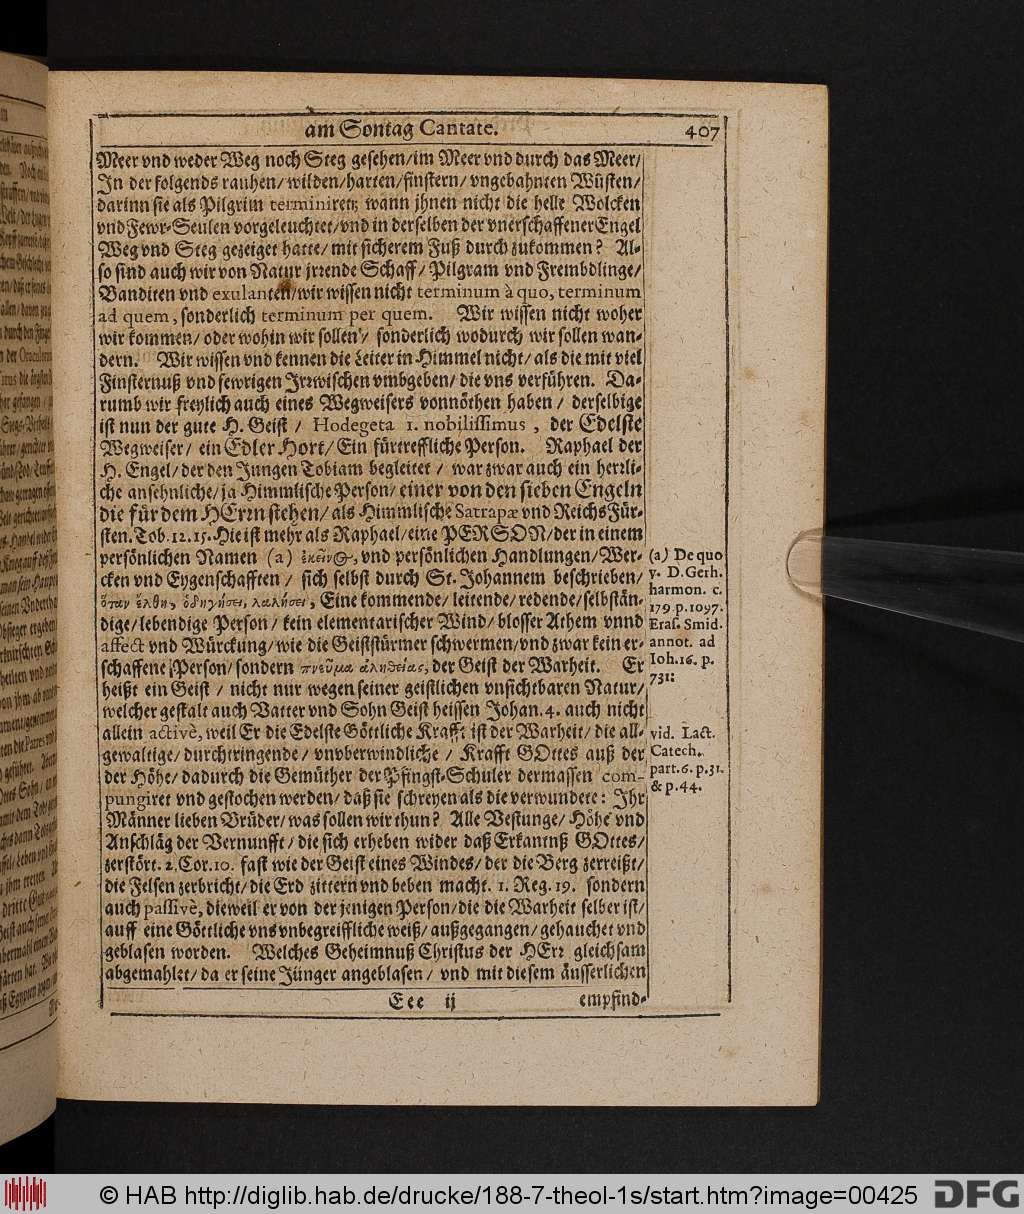 am Sontag Cantate. 407
Meer vnd weder Weg noch Steg gesehen/im Meer vnd durch das Meer/
In der folgends rauhen/wilden/harten/finstern/vngebahnten Wüsten/
darinn sie als Pilgrim terminiret; wann jhnen nicht die helle Wolcken
vnd Fewr-Seulen vorgeleuchtet/vnd in derselben der vnerschaffener Engel
Weg vnd Steg gezeiget hatte/mit sicherem Fuß durch zukommen? Al-
so sind auch wir von Natur jrrende Schaff/Pilgram vnd Frembdlinge/
Banditen vnd exulanten/wir wissen nicht terminum à quo, terminum
ad quem, sonderlich terminum per quem. Wir wissen nicht woher
wir kommen/oder wohin wir sollen/ sonderlich wodurch wir sollen wan-
dern. Wir wissen vnd kennen die Leiter in Himmel nicht/als die mit viel
Finsternuß vnd fewrigen Jrrwischen vmbgeben/die vns verführen. Da-
rumb wir freylich auch eines Wegweisers vonnöthen haben/ derselbige
ist nun der gute H. Geist / Hodegeta 1. nobilissimus, der Edelste
Wegweiser/ein Edler Hort/Ein fürtreffliche Person. Raphael der
H. Engel/der den Jungen Tobiam begleitet / war zwar auch ein herrli-
che ansehnliche/ja Himmlische Person/einer von den sieben Engeln
die für dem HErrn stehen/als Himmlische Satrapæ vnd Reichs Für-
sten. Tob. 12. 15. Hie ist mehr als Raphael/eine PERSON/der in einem
persönlichen Namen (a) ἐκεῖνος, vnd persönlichen Handlungen/Wer-
cken vnd Eygenschafften / sich selbst durch St. Johannem beschrieben/
ὅταν ἔλθῃ, ὁδηγήσει, λαλήσει, Eine kommende/leitende/redende/selbstän-
dige/lebendige Person/ kein elementarischer Wind/blosser Athem vnnd
affect vnd Würckung/wie die Geiststürmer schwermen/vnd zwar kein er-
schaffene Person/sondern πνεῦμα ἀληθείας, der Geist der Warheit. Er
heißt ein Geist / nicht nur wegen seiner geistlichen vnsichtbaren Natur/
welcher gestalt auch Vatter vnd Sohn Geist heissen Johan. 4. auch nicht
allein activè, weil Er die Edelste Göttliche Krafft ist der Warheit/die all-
gewaltige/durchtringende/vnvberwindliche/ Krafft GOttes auß der
der Höhe/dadurch die Gemüther der Pfingst-Schuler dermassen com-
pungiret vnd gestochen werden/daß sie schreyen als die verwundete: Ihr
Männer lieben Brüder/was sollen wir thun? Alle Vestunge/Höhe vnd
Anschläg der Vernunfft/die sich erheben wider daß Erkantnß GOttes/
zerstört. 2. Cor. 10. fast wie der Geist eines Windes/der die Berg zerreißt/
die Felsen zerbricht/die Erd zittern vnd beben macht. 1. Reg. 19. sondern
auch passivè, dieweil er von der jenigen Person/die die Warheit selber ist/
auff eine Göttliche vns vnbegreiffliche weiß/außgegangen/gehauchet vnd
geblasen worden. Welches Geheimnuß Christus der HErr gleichsam
abgemahlet/da er seine Jünger angeblasen / vnd mit diesem äusserlichen
Eee ij empfind-
(a) De quo
v. D. Gerh.
harmon. c.
179 p. 1097.
Eras. Smid.
annot. ad
Ioh. 16. p.
731:
vid. Lact.
Catech.
part. 6. p. 31.
& p. 44.
© HAB http://diglib.hab.de/drucke/188-7-theol-1s/start.htm?image=00425 DFG